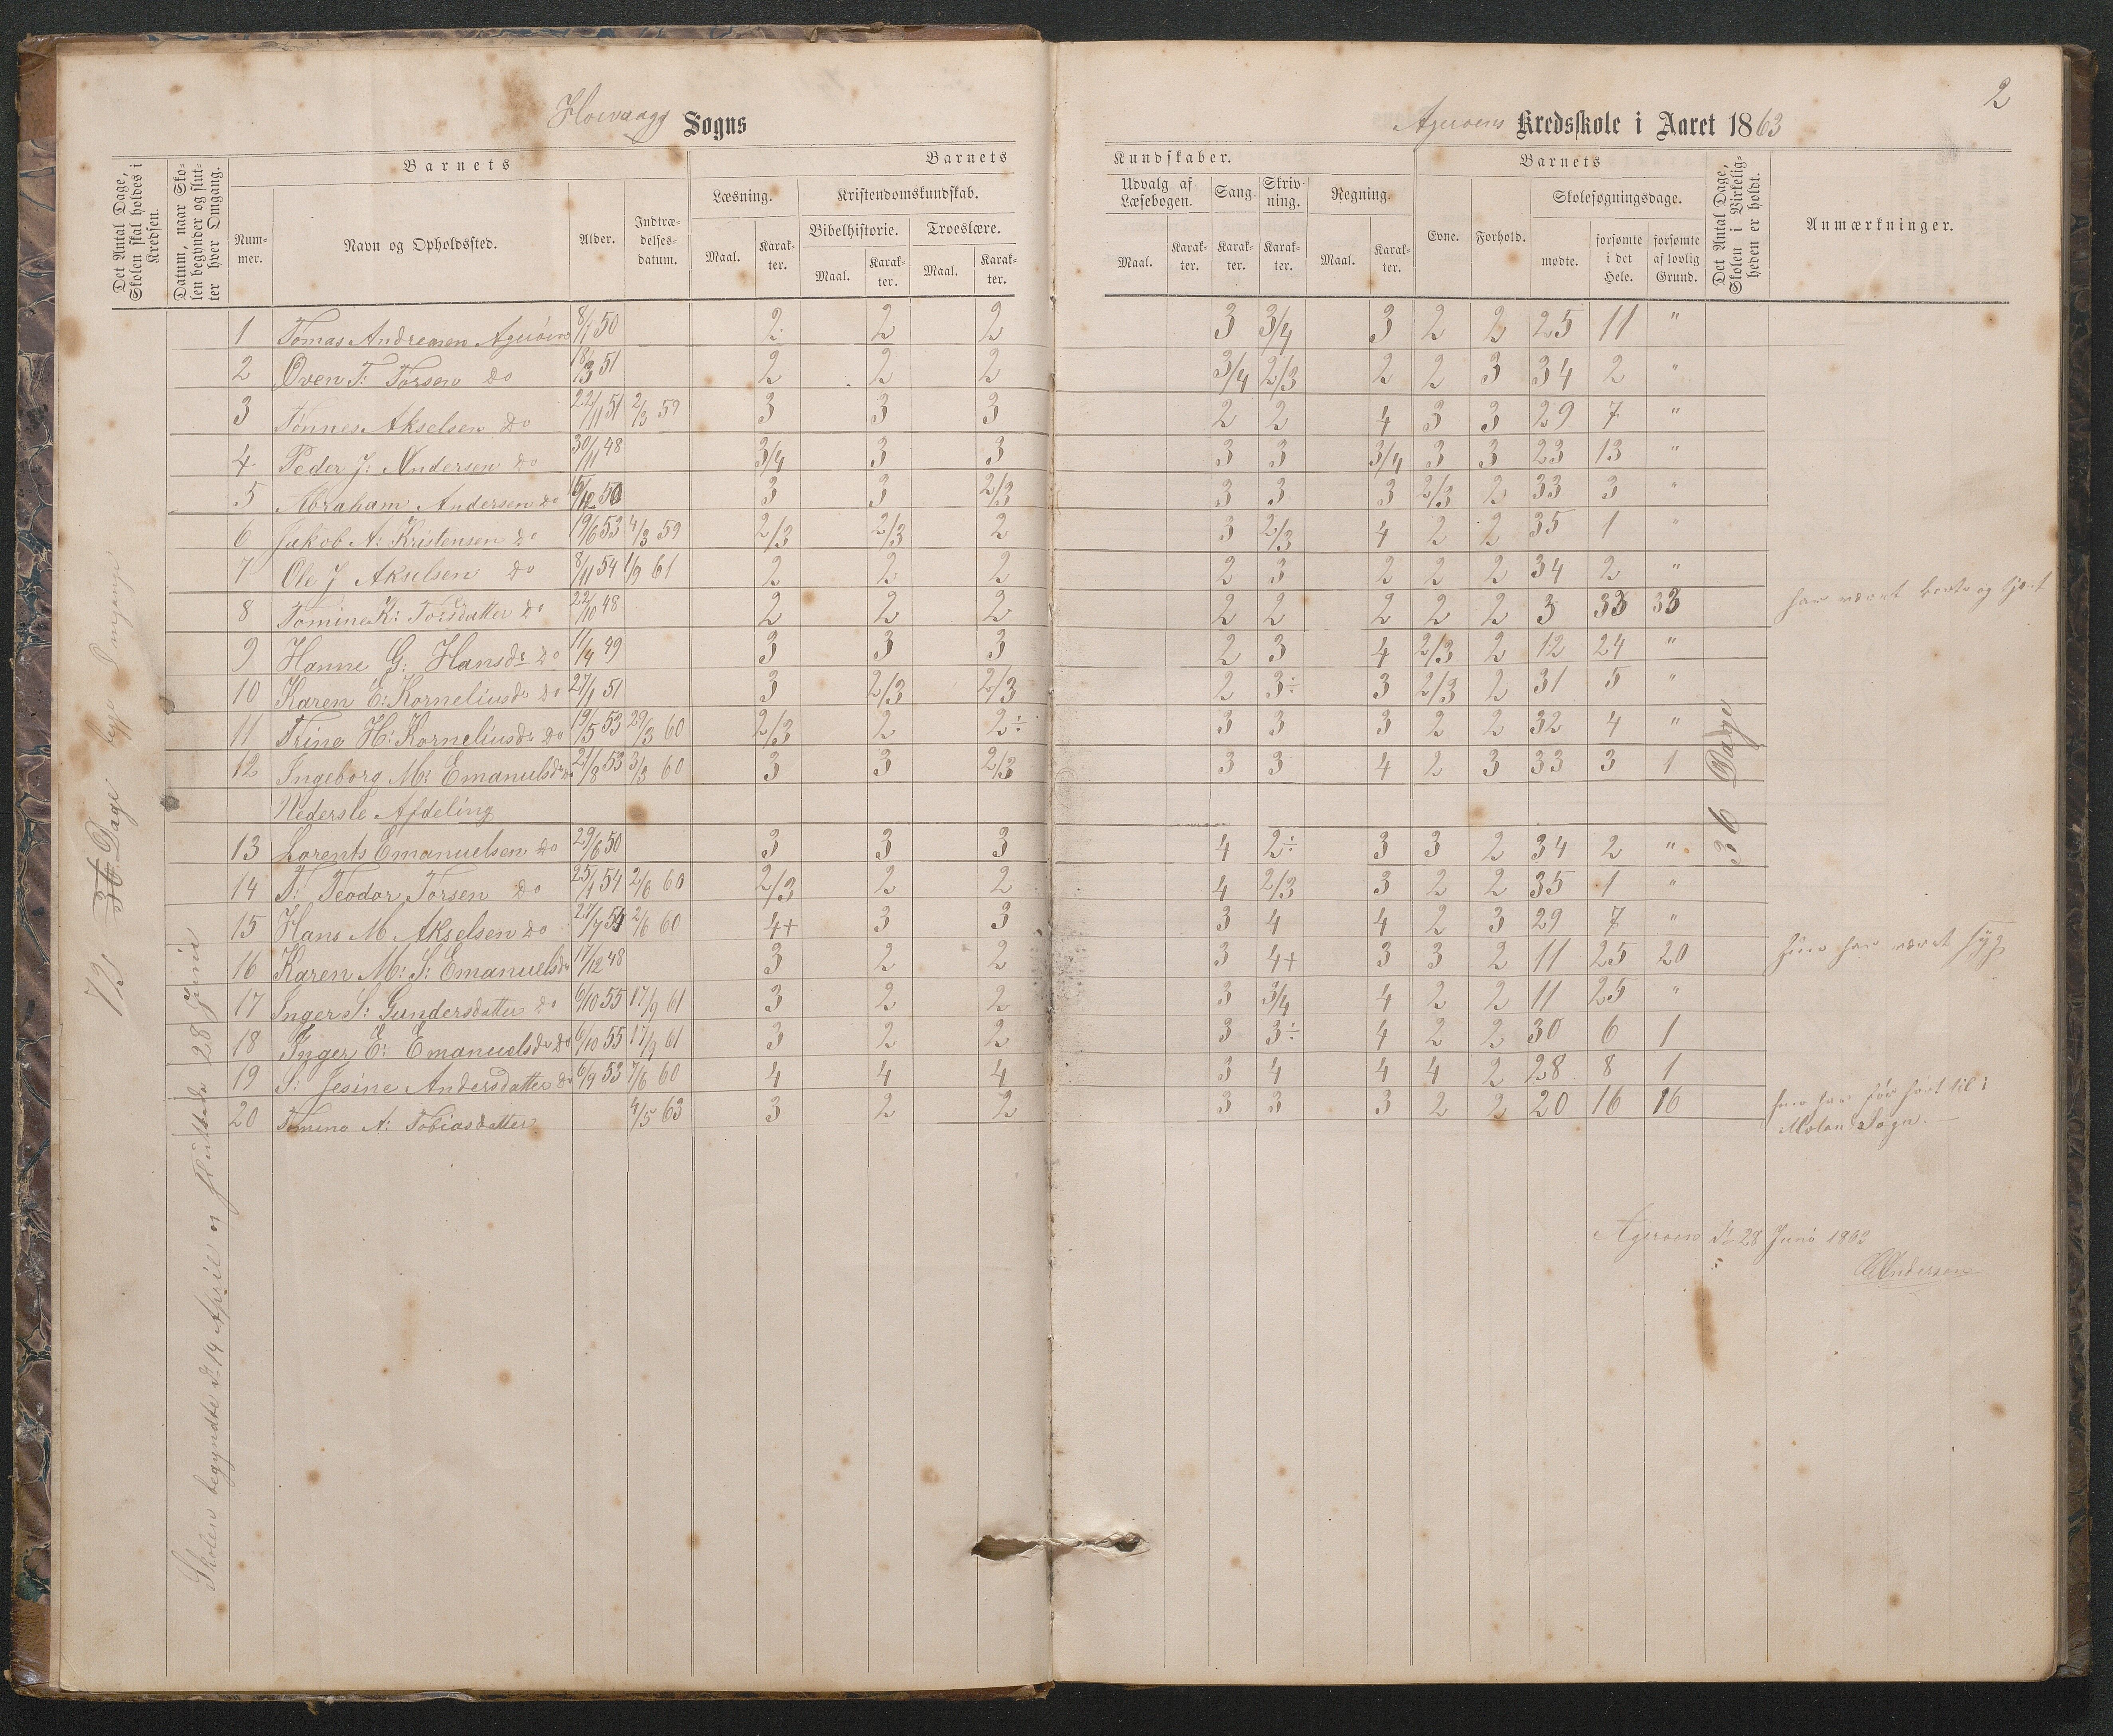 2
Hoevaagg Sogns
Ageroens Kredsskole i Aaret 1863
Det Antal Dage, Skolen skal holdes i Kredsen.
Datum, naar Skolen begynder og slutter hver Omgang.
Barnets
Nummer.
Navn og Opholdssted.
Alder.
Indtrædelsesdatum.
Barnets Kundskaber.
Læsning.
Maal.
Karakter.
Kristendomskundskab.
Bibelhistorie.
Maal.
Karakter.
Troeslære.
Maal.
Karakter.
Udvalg af Læsebogen.
Maal.
Karakter.
Sang.
Karakter.
Skrivning.
Karakter.
Regning.
Maal.
Karakter.
Barnets
Evne.
Forhold.
Skolesøgningsdage.
mødte.
forsømte i det Hele.
forsømte af lovlig Grund.
Det Antal Dage, Skolen i Virkeligheden er holdt.
Anmærkninger.
1 Tomas Andresen Ageröen 8/1 50 2 2 2 3 3/4 3 2 2 25 11 "
2 Oven T: Torsen do 18/3 51 2 2 2 3/4 2/3 2 2 3 34 2 "
3 Tønnes Akselsen do 22/11 51 2/3 59 3 3 3 2 2 4 3 3 29 7 "
4 Peder J: Andersen do 30/11 48 3/4 3 3 3 3 3/4 3 3 23 13 "
5 Abraham Andersen do 6/12 50 3 3 2/3 3 3 3 2/3 2 33 3 "
6 Jakob A: Kristensen do 19/6 53 4/3 59 2/3 2/3 2 3 2/3 4 2 2 35 1 "
7 Ole J Akselsen do 8/11 54 1/9 61 2 2 2 2 3 2 2 2 34 2 "
8 Tomine K: Torsdatter do 22/10 48 2 2 2 2 2 2 2 2 3 33 33 har været borte og tjent
9 Hanne G: Hansdr do 11/4 49 3 3 3 2 3 4 2/3 2 12 24 "
10 Karen E: Korneliusdr do 27/1 51 3 2/3 2/3 2 3÷ 3 2/3 2 31 5 "
11 Trine H: Korneliusdr do 19/5 53 29/3 60 2/3 2 2÷ 3 3 3 2 2 32 4 "
12 Ingeborg M: Emanuelsdr do 21/8 53 3/3 60 3 3 2/3 3 3 4 2 3 33 3 1
Nederste Afdeling
13 Lorents Emanuelsen do 29/6 50 3 3 3 4 2÷ 3 3 2 34 2 "
14 T: Teodor Torsen do 25/1 54 2/6 60 2/3 2 2 4 2/3 3 2 2 35 1 "
15 Hans M Akselsen do 27/7 54 2/6 60 4+ 3 3 3 4 4 2 3 29 7 "
16 Karen M: S: Emanuelsdr 17/12 48 3 2 2 3 4+ 3 3 2 11 25 20 hun har været syg
17 Inger S: Gundersdatter do 6/10 55 17/9 61 3 2 2 3 3/4 4 2 2 11 25 "
18 Inger E: Emanuelsdr do 6/10 55 17/9 61 3 2 2 3 3÷ 4 2 2 30 6 1
19 S: Jesine Andersdatter do 6/9 53 7/6 60 4 4 4 3 4 4 4 2 28 8 1
20 Tomine A: Tobiasdatter 4/5 63 3 2 2 3 3 3 2 2 20 16 16 hun har før hørt til i
Moland Sogn.
73 36 Dage
Skolen begyndte d. 14 April og sluttede 28 Juni
36 Dage
Ageroen d. 28 Juni 1863
Andersen